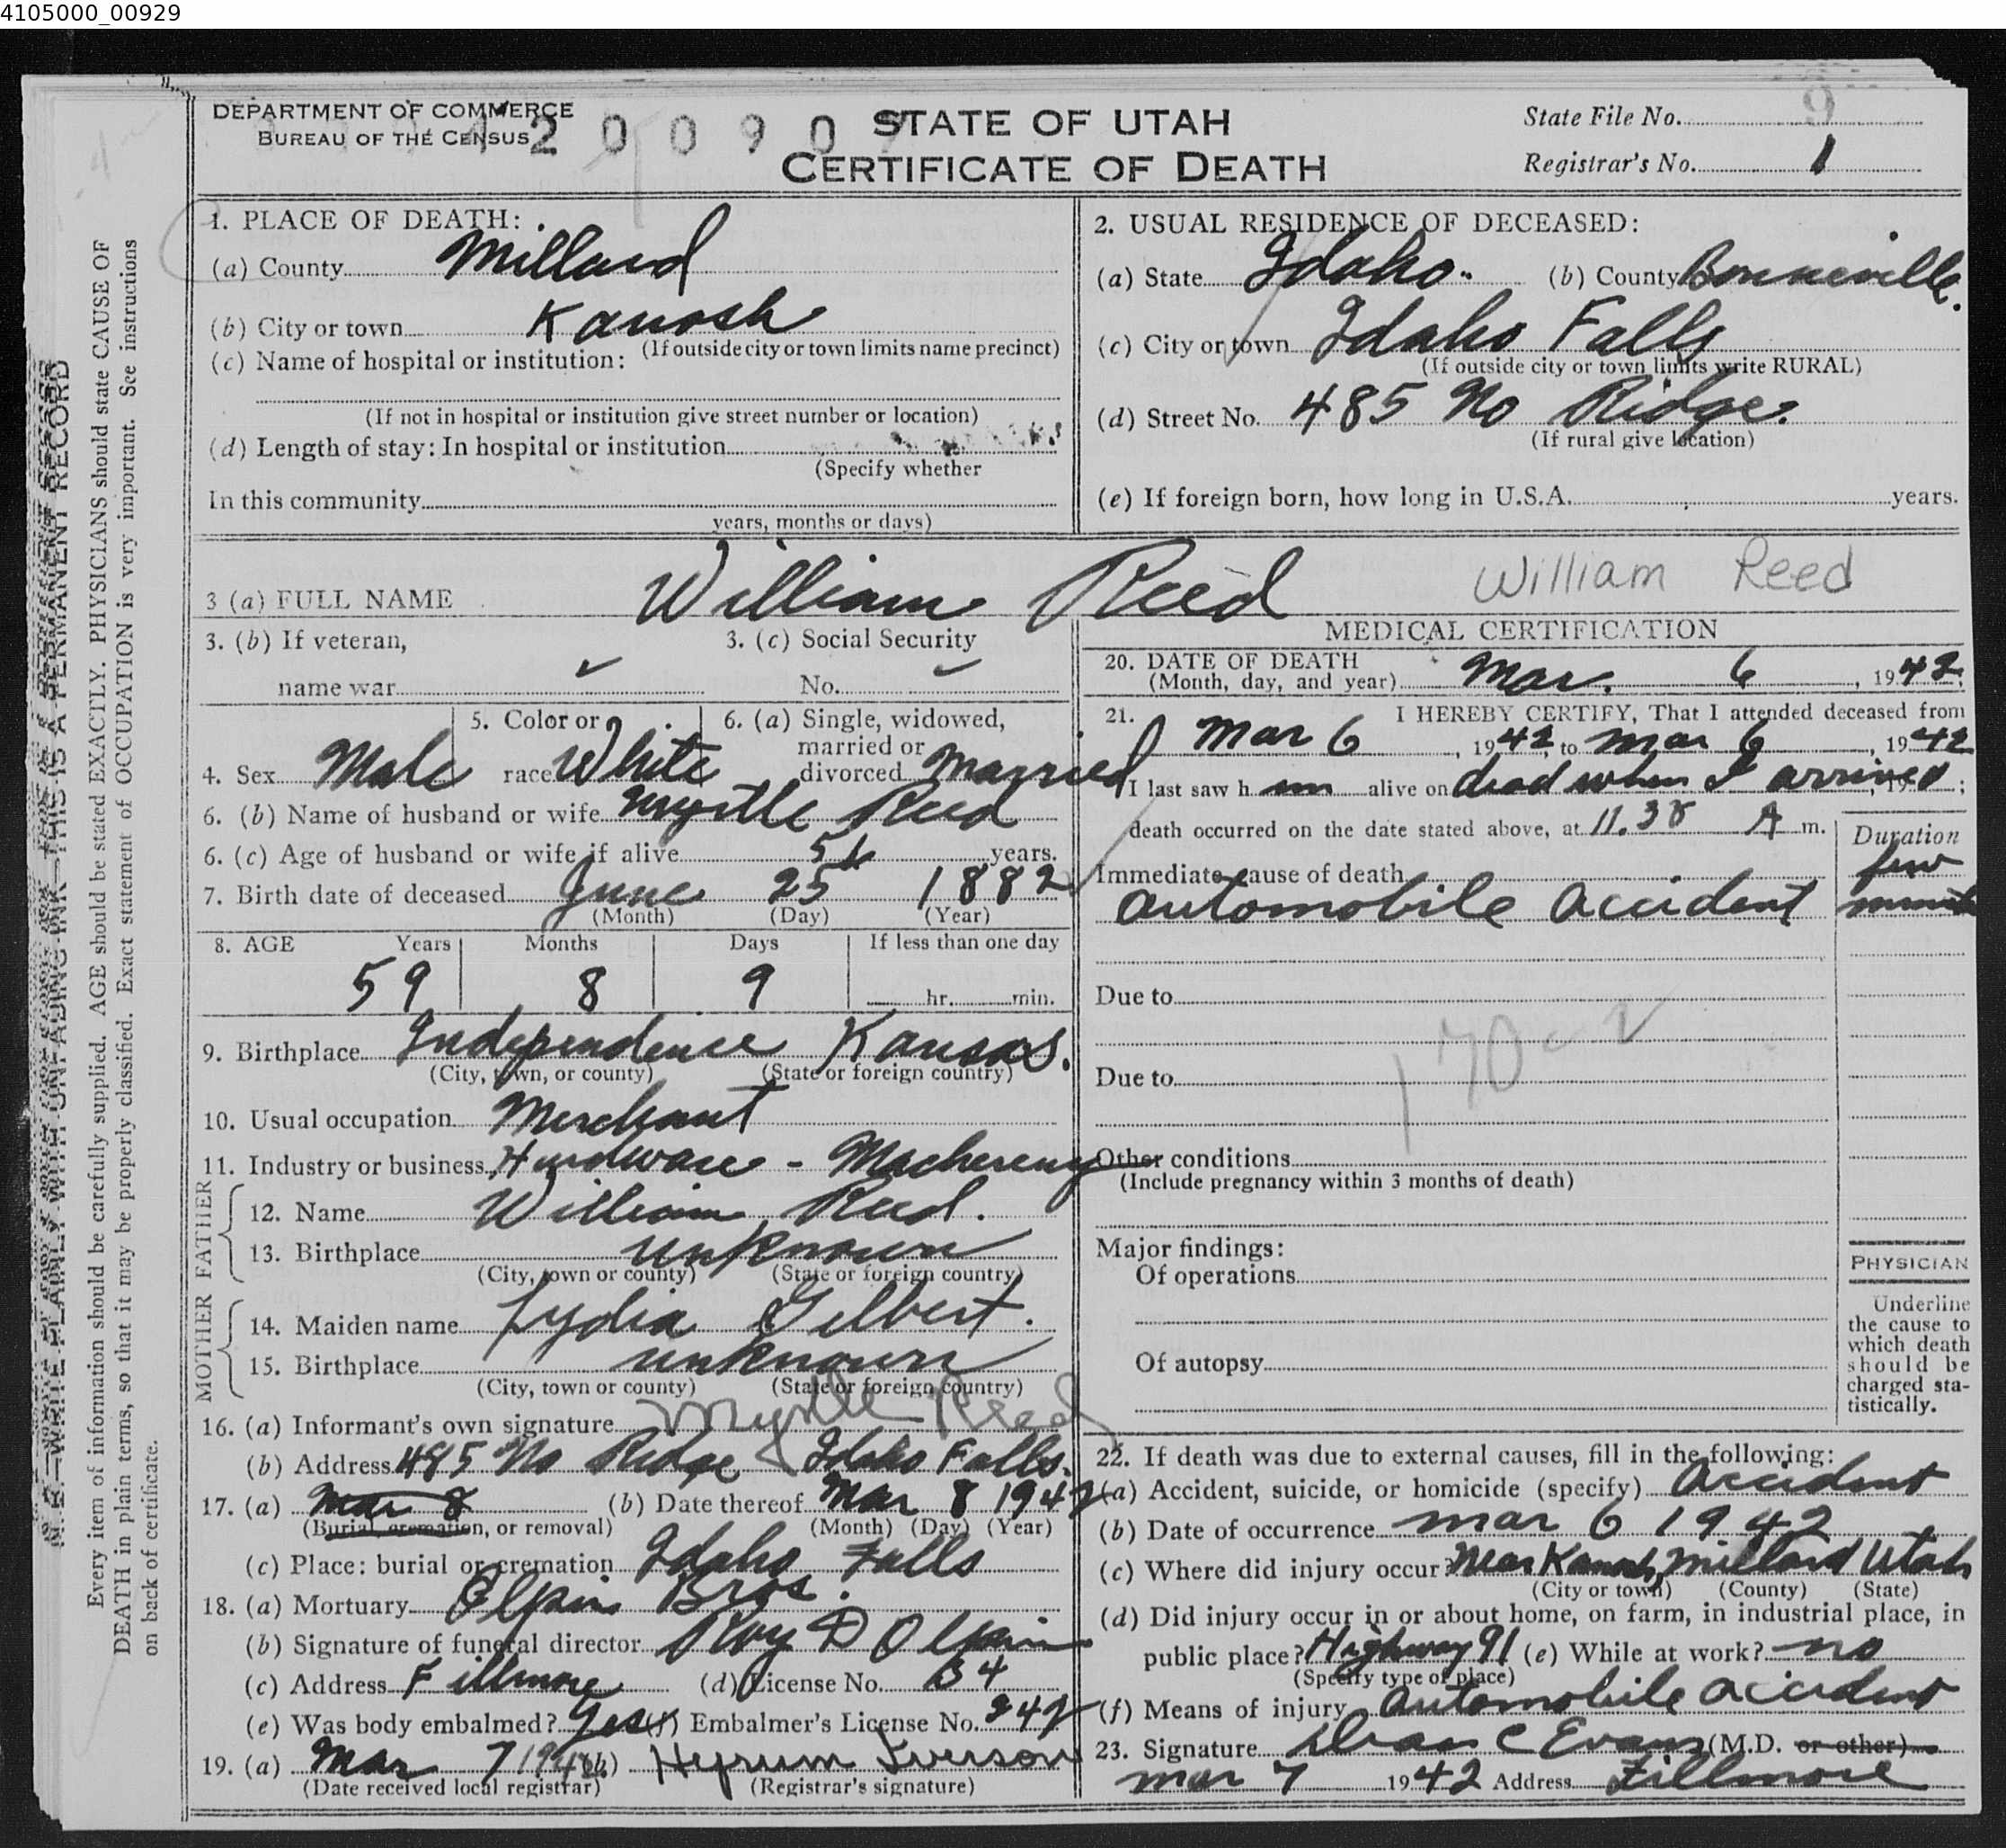 4105000_00929
DEPARTMENT OF COMMERCE
BUREAU OF THE CENSUS
2 0 0 9 0
STATE OF UTAH
CERTIFICATE OF DEATH
State File No. 9
Registrar's No. 1
1. PLACE OF DEATH:
(a) County Millard
(b) City or town Kanosh
(If outside city or town limits name precinct)
(c) Name of hospital or institution:
(If not in hospital or institution give street number or location)
(d) Length of stay: In hospital or institution
(Specify whether
In this community
years, months or days)
2. USUAL RESIDENCE OF DECEASED:
(a) State Idaho. (b) County Bonneville.
(c) City or town Idaho Falls
(If outside city or town limits write RURAL)
(d) Street No. 485 No Ridge.
(If rural give location)
(e) If foreign born, how long in U.S.A. years.
3 (a) FULL NAME William Reed William Reed
3. (b) If veteran,
name war
3. (c) Social Security
No.
4. Sex Male
5. Color or
race White
6. (a) Single, widowed,
married or
divorced Married
6. (b) Name of husband or wife Myrtle Reed
6. (c) Age of husband or wife if alive years.
7. Birth date of deceased June 25 1882
(Month) (Day) (Year)
8. AGE Years Months Days If less than one day
59 8 9 hr. min.
9. Birthplace Independence Kansas.
(City, town, or county) (State or foreign country)
10. Usual occupation Merchant
11. Industry or business Hardware - Machereny
FATHER
12. Name William Reed.
13. Birthplace unknown
(City, town or county) (State or foreign country)
MOTHER
14. Maiden name Lydia Gilbert.
15. Birthplace unknown
(City, town or county) (State or foreign country)
16. (a) Informant's own signature Myrtle Reed
(b) Address 485 No Ridge Idaho Falls.
17. (a) Mar 8 (b) Date thereof Mar 8 1942
(Burial, cremation, or removal) (Month) (Day) (Year)
(c) Place: burial or cremation Idaho Falls
18. (a) Mortuary Olpin Bros.
(b) Signature of funeral director Roy D Olpin
(c) Address Fillmore (d) License No. 34
(e) Was body embalmed? Yes (f) Embalmer's License No. 242
19. (a) Mar 7 1942 (b) Hyrum Iverson
(Date received local registrar) (Registrar's signature)
MEDICAL CERTIFICATION
20. DATE OF DEATH
(Month, day, and year) Mar. 6, 1942
21. I HEREBY CERTIFY, That I attended deceased from
Mar 6, 1942 to Mar 6, 1942
I last saw h im alive on dead when I arrived, 19 ;
death occurred on the date stated above, at 11.38 A m.
Duration
Immediate cause of death few
automobile accident
Due to
Due to
170c-2
Other conditions
(Include pregnancy within 3 months of death)
Major findings:
Of operations
Of autopsy
PHYSICIAN
Underline
the cause to
which death
should be
charged sta-
tistically.
22. If death was due to external causes, fill in the following:
(a) Accident, suicide, or homicide (specify) Accident
(b) Date of occurrence Mar 6 1942
(c) Where did injury occur? Near Kanosh, Millard Utah
(City or town) (County) (State)
(d) Did injury occur in or about home, on farm, in industrial place, in
public place? Highway 91 (e) While at work? no
(Specify type of place)
(f) Means of injury automobile accident
23. Signature Dean C Evans (M.D. or other)
Mar 7 1942 Address Fillmore
N. B.—WRITE PLAINLY WITH UNFADING INK—THIS IS A PERMANENT RECORD
Every item of information should be carefully supplied. AGE should be stated EXACTLY. PHYSICIANS should state CAUSE OF
DEATH in plain terms, so that it may be properly classified. Exact statement of OCCUPATION is very important. See instructions
on back of certificate.